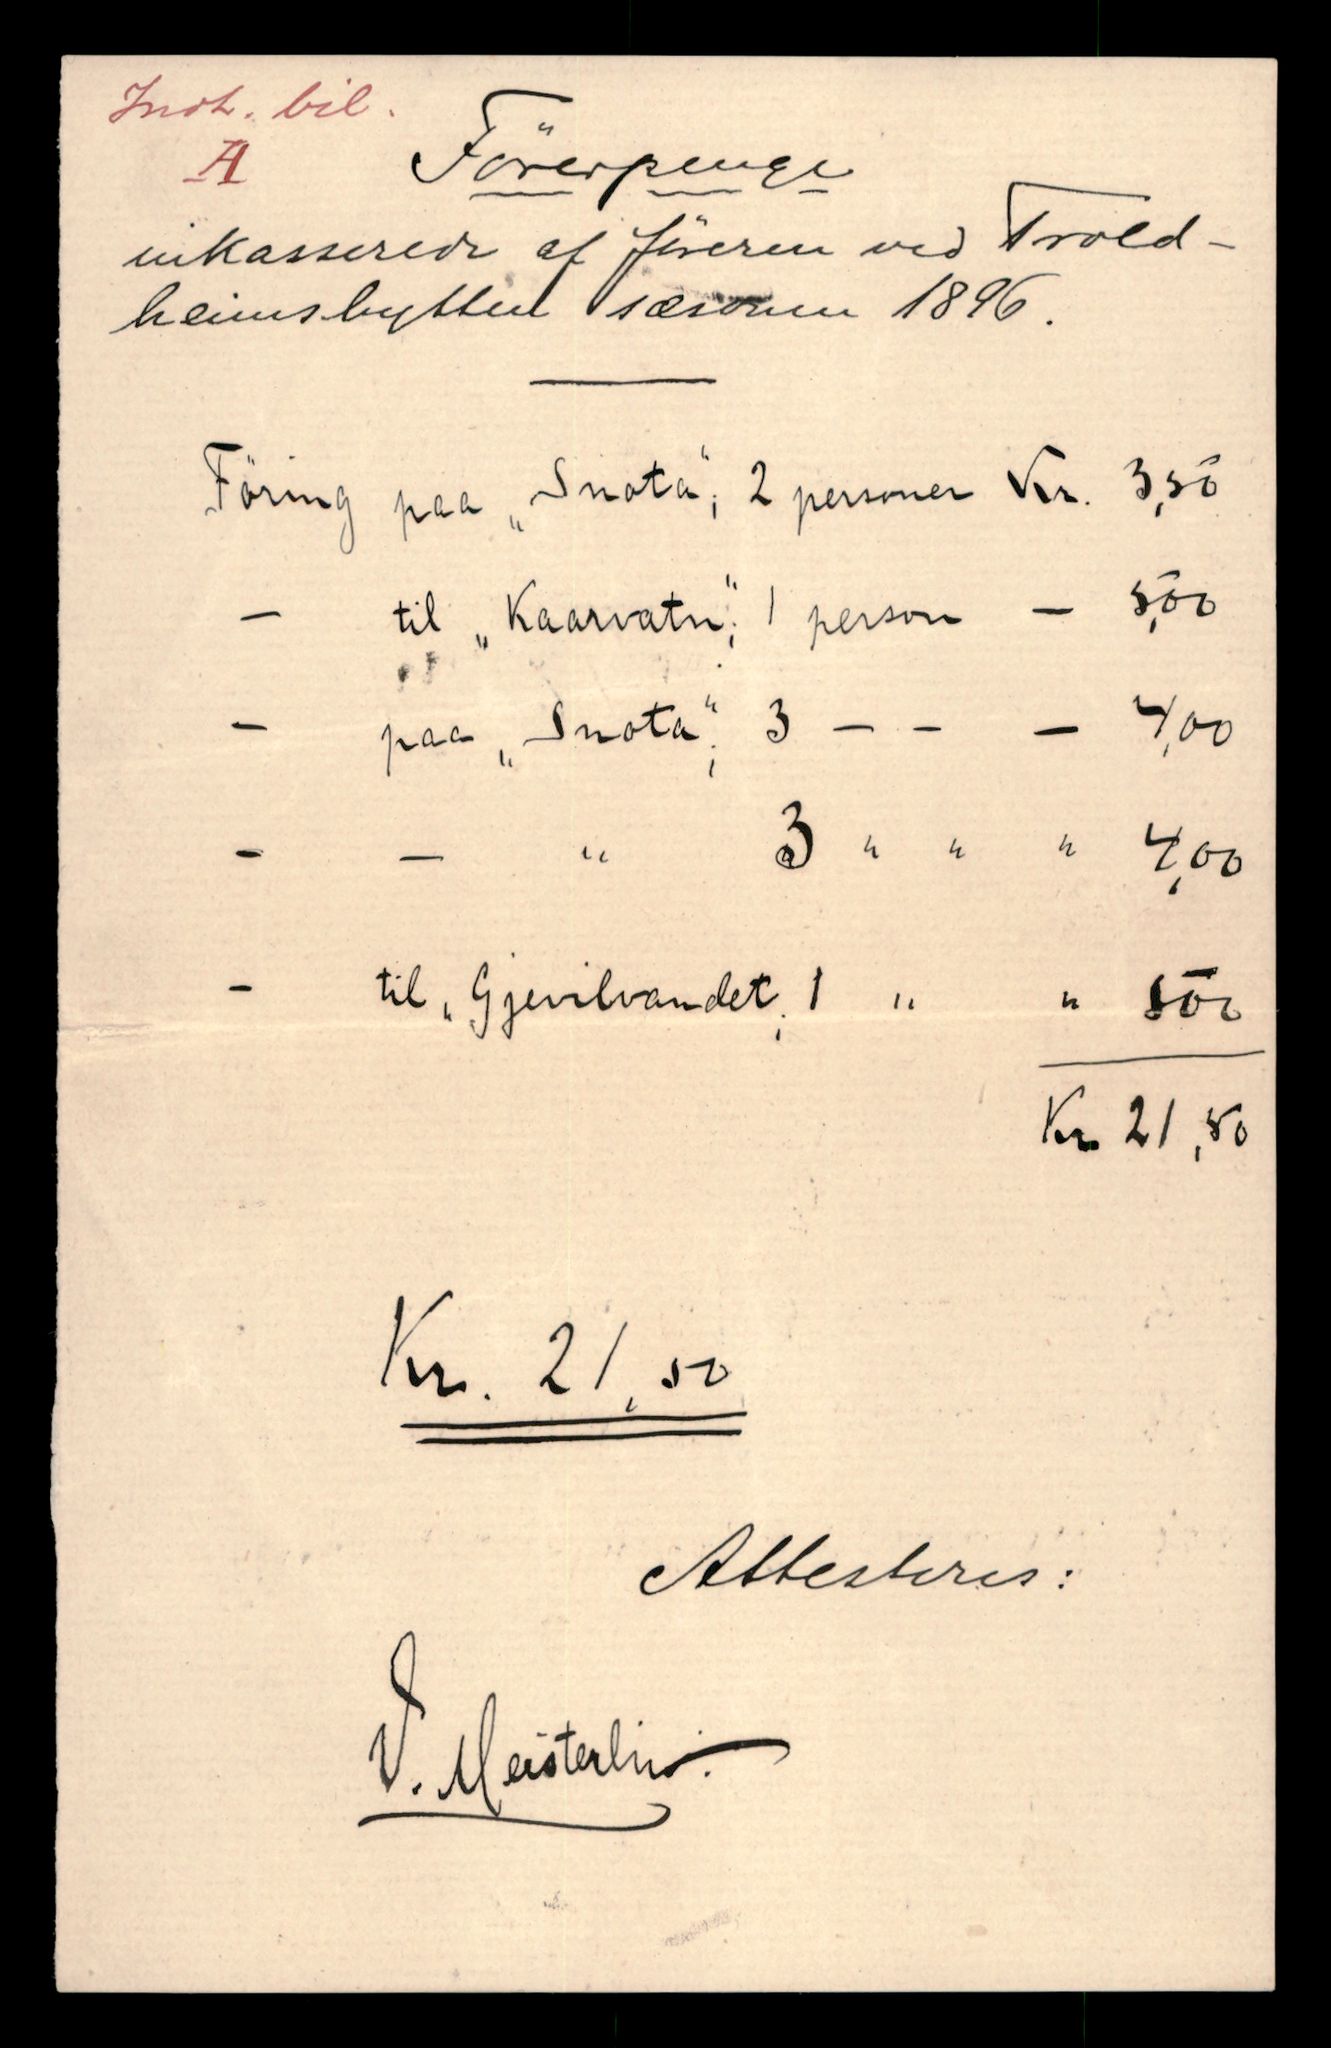 Indt. bil.
A
Förerpenge
inkasserede af föreren ved Trold-
heimshytten sæsonen 1896.
Föring paa „Snota“, 2 personer Kr. 3,50
— til „Kaarvatn“, 1 person — 5,00
— paa „Snota“, 3 — — — 4,00
— — " 3 " " " 4,00
— til „Gjevilvandet, 1 " " 500
Kr 21,50
Kr. 21,50
Attesteres:
V. Meisterlin.